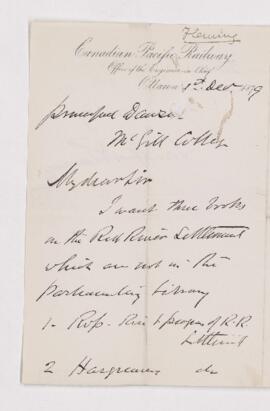 Fleming
Canadian Pacific Railway
Office of the Engineer in Chief
Ottawa 1st Dec 1879
Principal Dawson
McGill College
My dear Sir
I want three books
on the Red River Settlement
which are not in the
Parliamentary Library
1 - Ross - Rise & progress of R. R.
Settlement
2 Hargreaves do